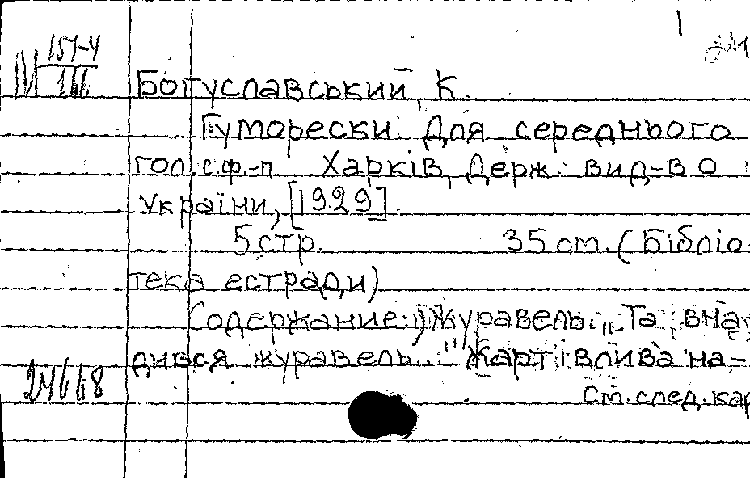 1
М 157-4
166
Богуславський, К.
Гуморески. Для середнього
гол. с ф.-п Харків, Держ. вид-во
України, [1929].
5 стр. 35 cm. (Бібліо-
тека естради)
Содержание: Журавель. "Та вна-
дився журавель.." Жартівлива на-
24668
См. след. кар